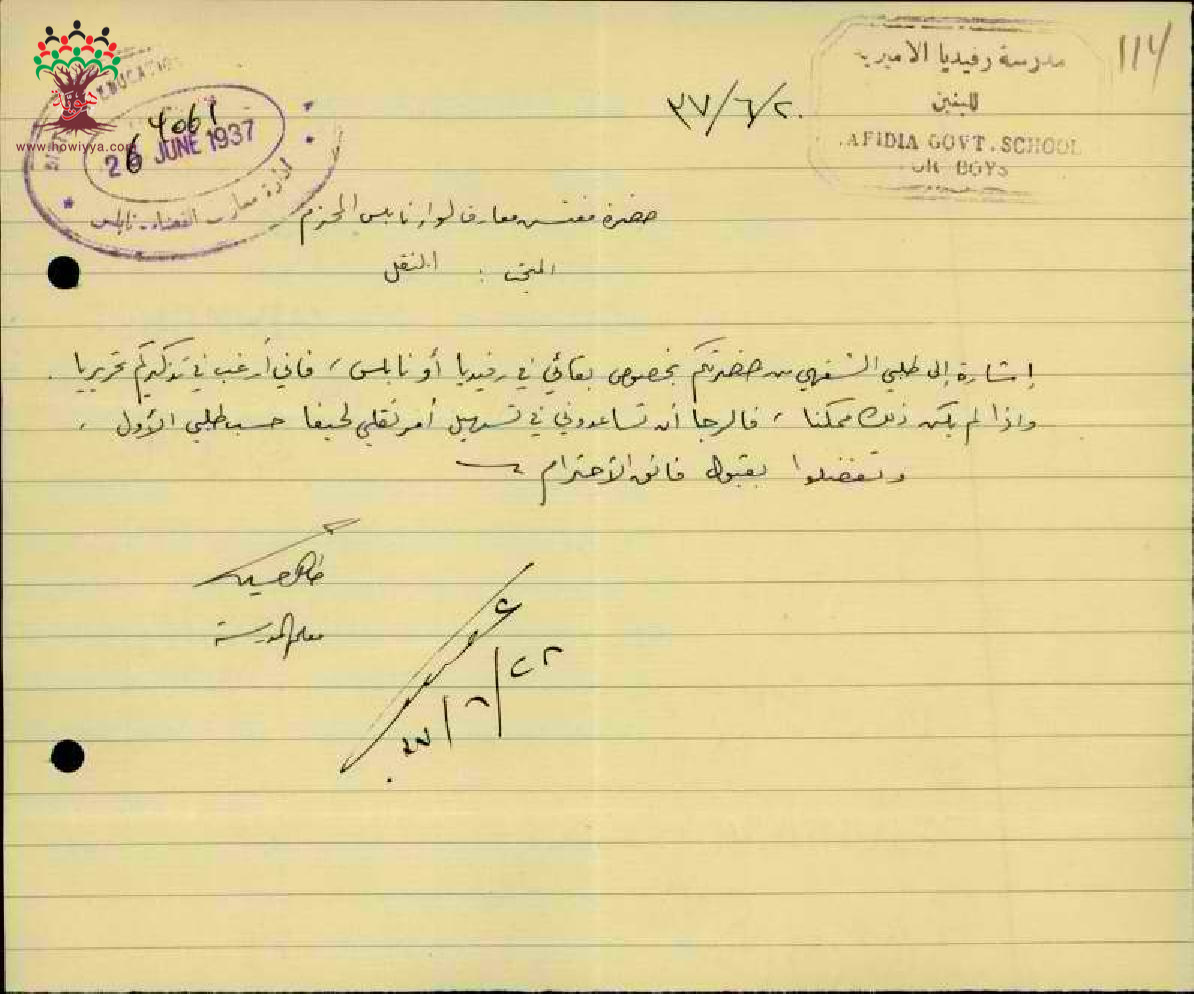 مدرسة رفيديا الاميرية
للبنين
.AFIDIA GOVT. SCHOOL
BOYS
114
EDUCATION
4061
26 JUNE 1937
ادارة معارف القضاء - نابلس
www.howiyya.com
٣٧/٦/٢٠
حضرة مفتش معارف لواء نابلس المحترم
المبحث : النقل
إشارة إلى طلبي الشفهي من حضرتكم بخصوص بقائي في رفيديا أو نابلس ، فاني أرغب في تذكيركم تحريريا .
واذا لم يكن ذلك ممكنا ، فالرجا أن تساعدوني في تسهيل أمر نقلي لحيفا حسب طلبي الأول ،
وتفضلوا بقبول فائق الأحترام
معلم المدرسة
٣٧/٦/٢٢